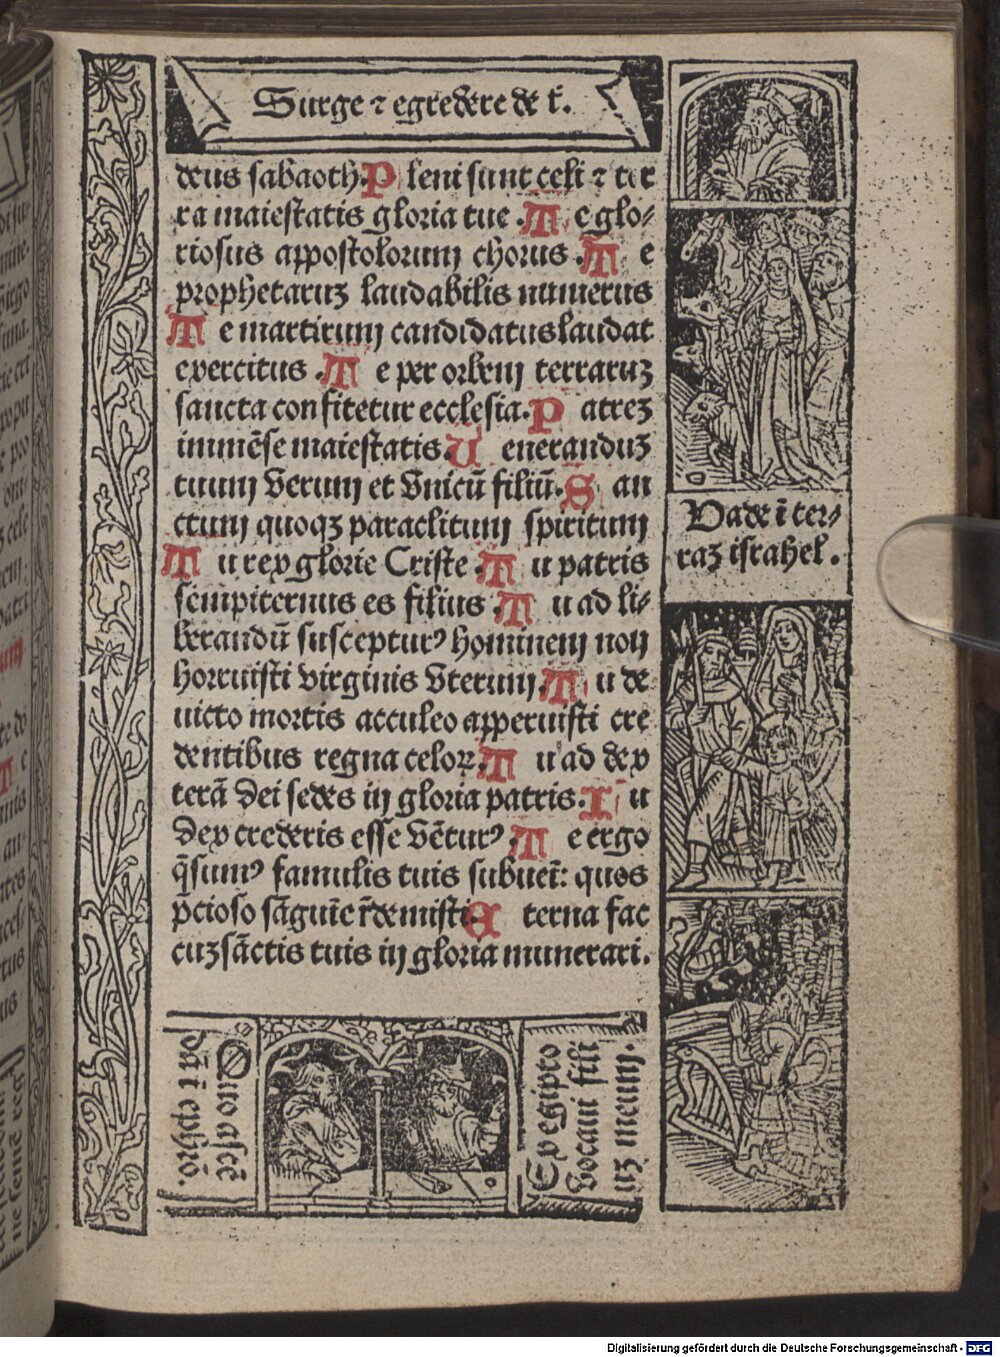 Surge ⁊ egredere de t̄.
deus sabaoth. Pleni sunt celi ⁊ ter
ra maiestatis gloria tue. Te glo-
riosus appostolorum chorus. Te
prophetaruꝫ laudabilis numerus
Te martirum candidatus laudat
exercitus. Te per orbem terraruꝫ
sancta confitetur ecclesia. Patreꝫ
immēse maiestatis. Ueneranduꝫ
tuum verum et vnicū filiū. San
ctum quoqꝫ paraclitum spiritum
Tu rex glorie Criste. Tu patris
sempiternus es filius. Tu ad li-
berandū suscepturꝰ hominem non
horruisti virginis vterum. Tu de
uicto mortis acculeo apperuisti cre
dentibus regna celoꝝ. Tu ad dex
terā dei sedes in gloria patris. Iu
dex crederis esse vēturꝰ. Te ergo
q̄sumꝰ famulis tuis subueī: quos
p̄cioso sāguīe r̄demisti. Eterna fac
cuꝫ sāctis tuis in gloria munerari.
Vade ī ter-
raꝫ israhel.
Quo ascē
dā ī ephrō.
Ex egipto
vocaui fili
uꝫ meum.
Digitalisierung gefördert durch die Deutsche Forschungsgemeinschaft - DFG